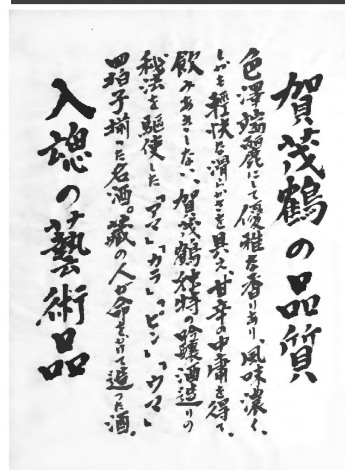 賀茂鶴の品質
色澤端麗にして優雅な香りあり、風味濃く、
しかも軽快な滑らかさを具え、甘辛の中庸を得て、
飲みあきしない、賀茂鶴独特の吟醸酒造りの
秘法を駆使した「アマ」「カラ」「ピン」「ウマ」
四拍子揃った名酒。蔵の人が命をかけて造った酒。
入魂の藝術品